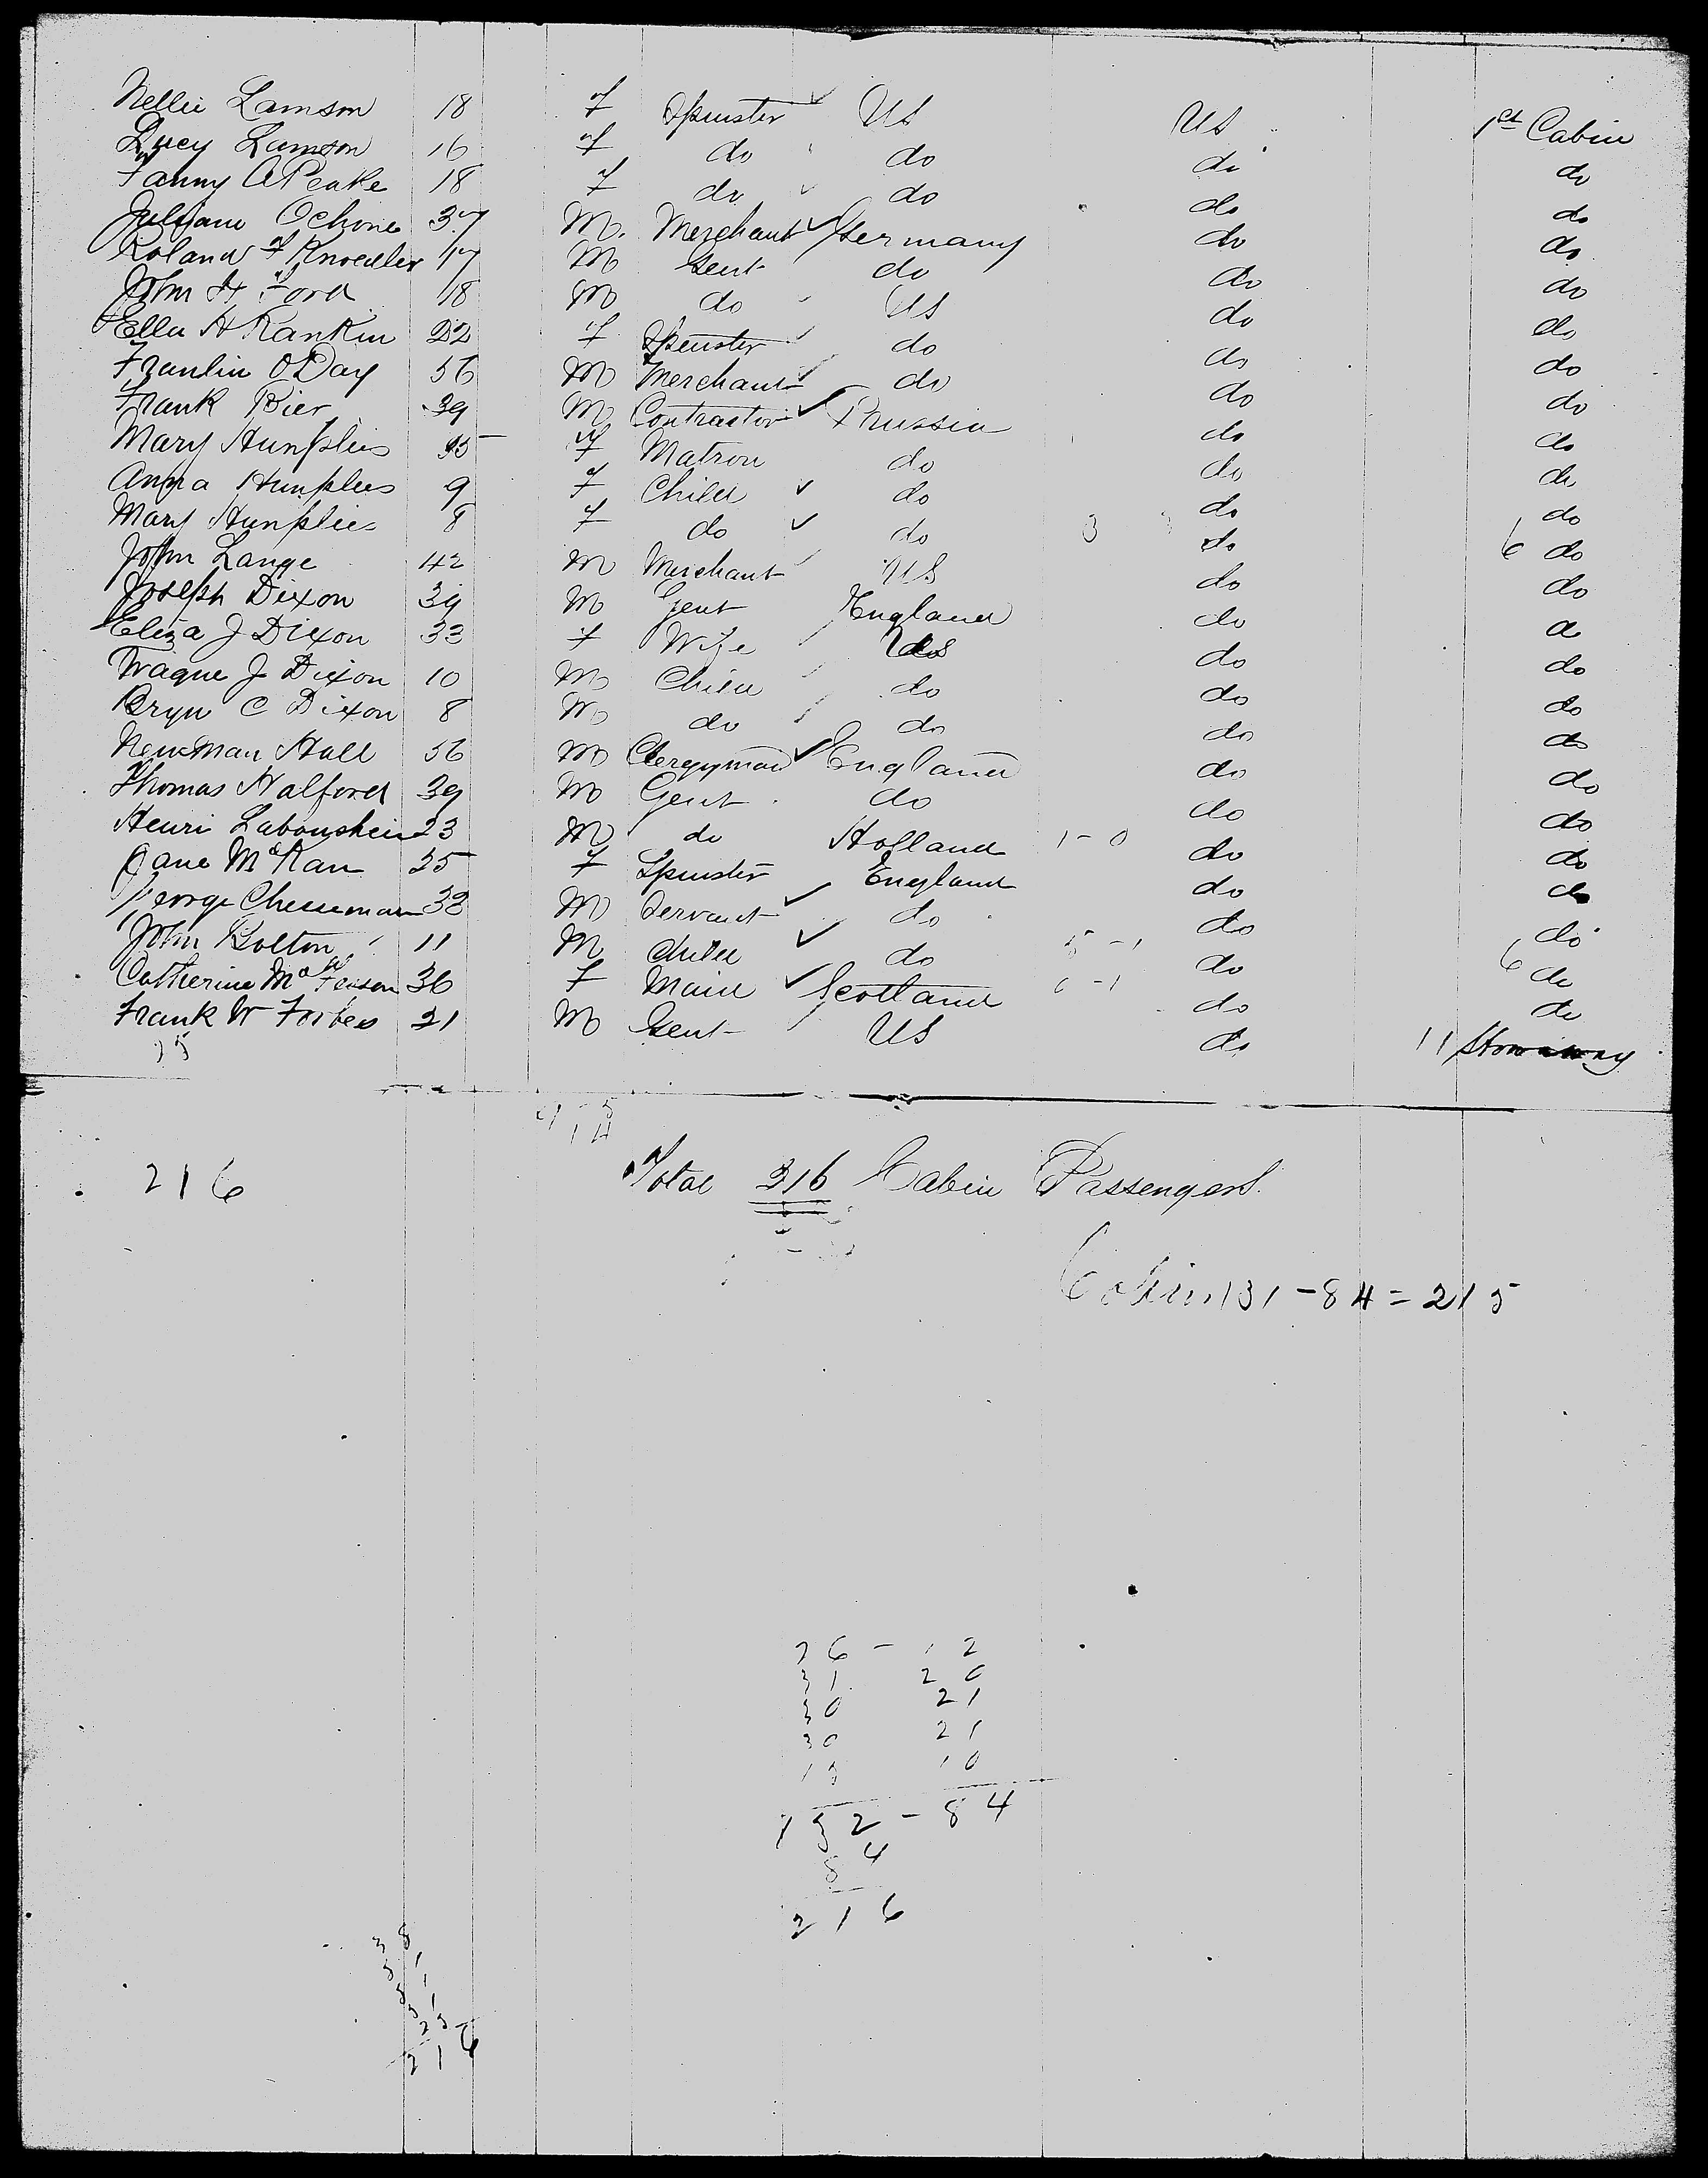 Nellie Lamson 18 F Spinster US US 1st Cabin
Lucy Lamson 16 F do do do do
Fanny A Peake 18 F do do do do
Juliane Ochone 37 M. Merchant Germany do do
Roland F Knoedler 17 M Gent do do do
John H Ford 18 M do US do do
Ella H Rankin 22 F Spinster do do do
Franlin O Day 56 M Merchant do do do
Frank Bier 39 M Contractor Prussia do do
Mary Humplies 35 F Matron do do do
Anna Humplies 9 F Child do do do
Mary Humplies 8 F do do 3 do 6 do
John Lange 42 M Merchant US do do
Joseph Dixon 39 M Gent England do do
Eliza J Dixon 33 F Wife US do do
J Dixon 10 M Child do do do
C Dixon 8 M do do do do
Newman Hall 56 M Clergyman England do do
Thomas Halford 39 M Gent do do do
Henri 23 M do Holland 1-0 do do
Jane 25 F Spinster England do do
George Cheeseman 32 M Servant do do do
John Bolton 11 M Child do 5-1 do 6 do
Catherine 36 F Maid Scotland 6-1 do do
Frank W Forbes 21 M Gent US do 11 Stowaway
25
216 Total 316 Cabin Passengers.
Cabin 131-84=215
26 - 12
31 20
30 21
30 21
15 10
132-84
84
216
38
216